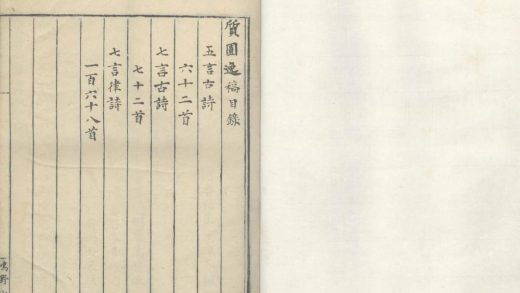 質園逸稿目錄
五言古詩
六十二首
七言古詩
七十二首
七言律詩
一百六十八首
鳴野